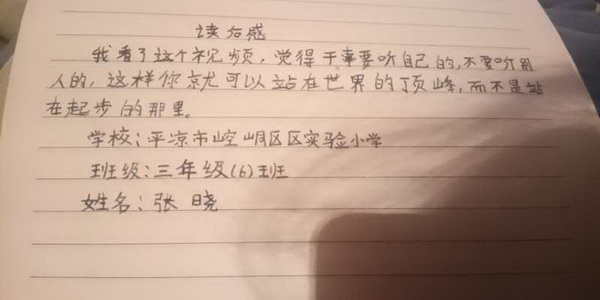 读后感
我看了这个视频,觉得干事要听自己的,不要听别
人的,这样你就可以站在世界的顶峰,而不是站
在起步的那里。
学校:平凉市崆峒区区实验小学
班级:三年级(6)班
姓名:张晓